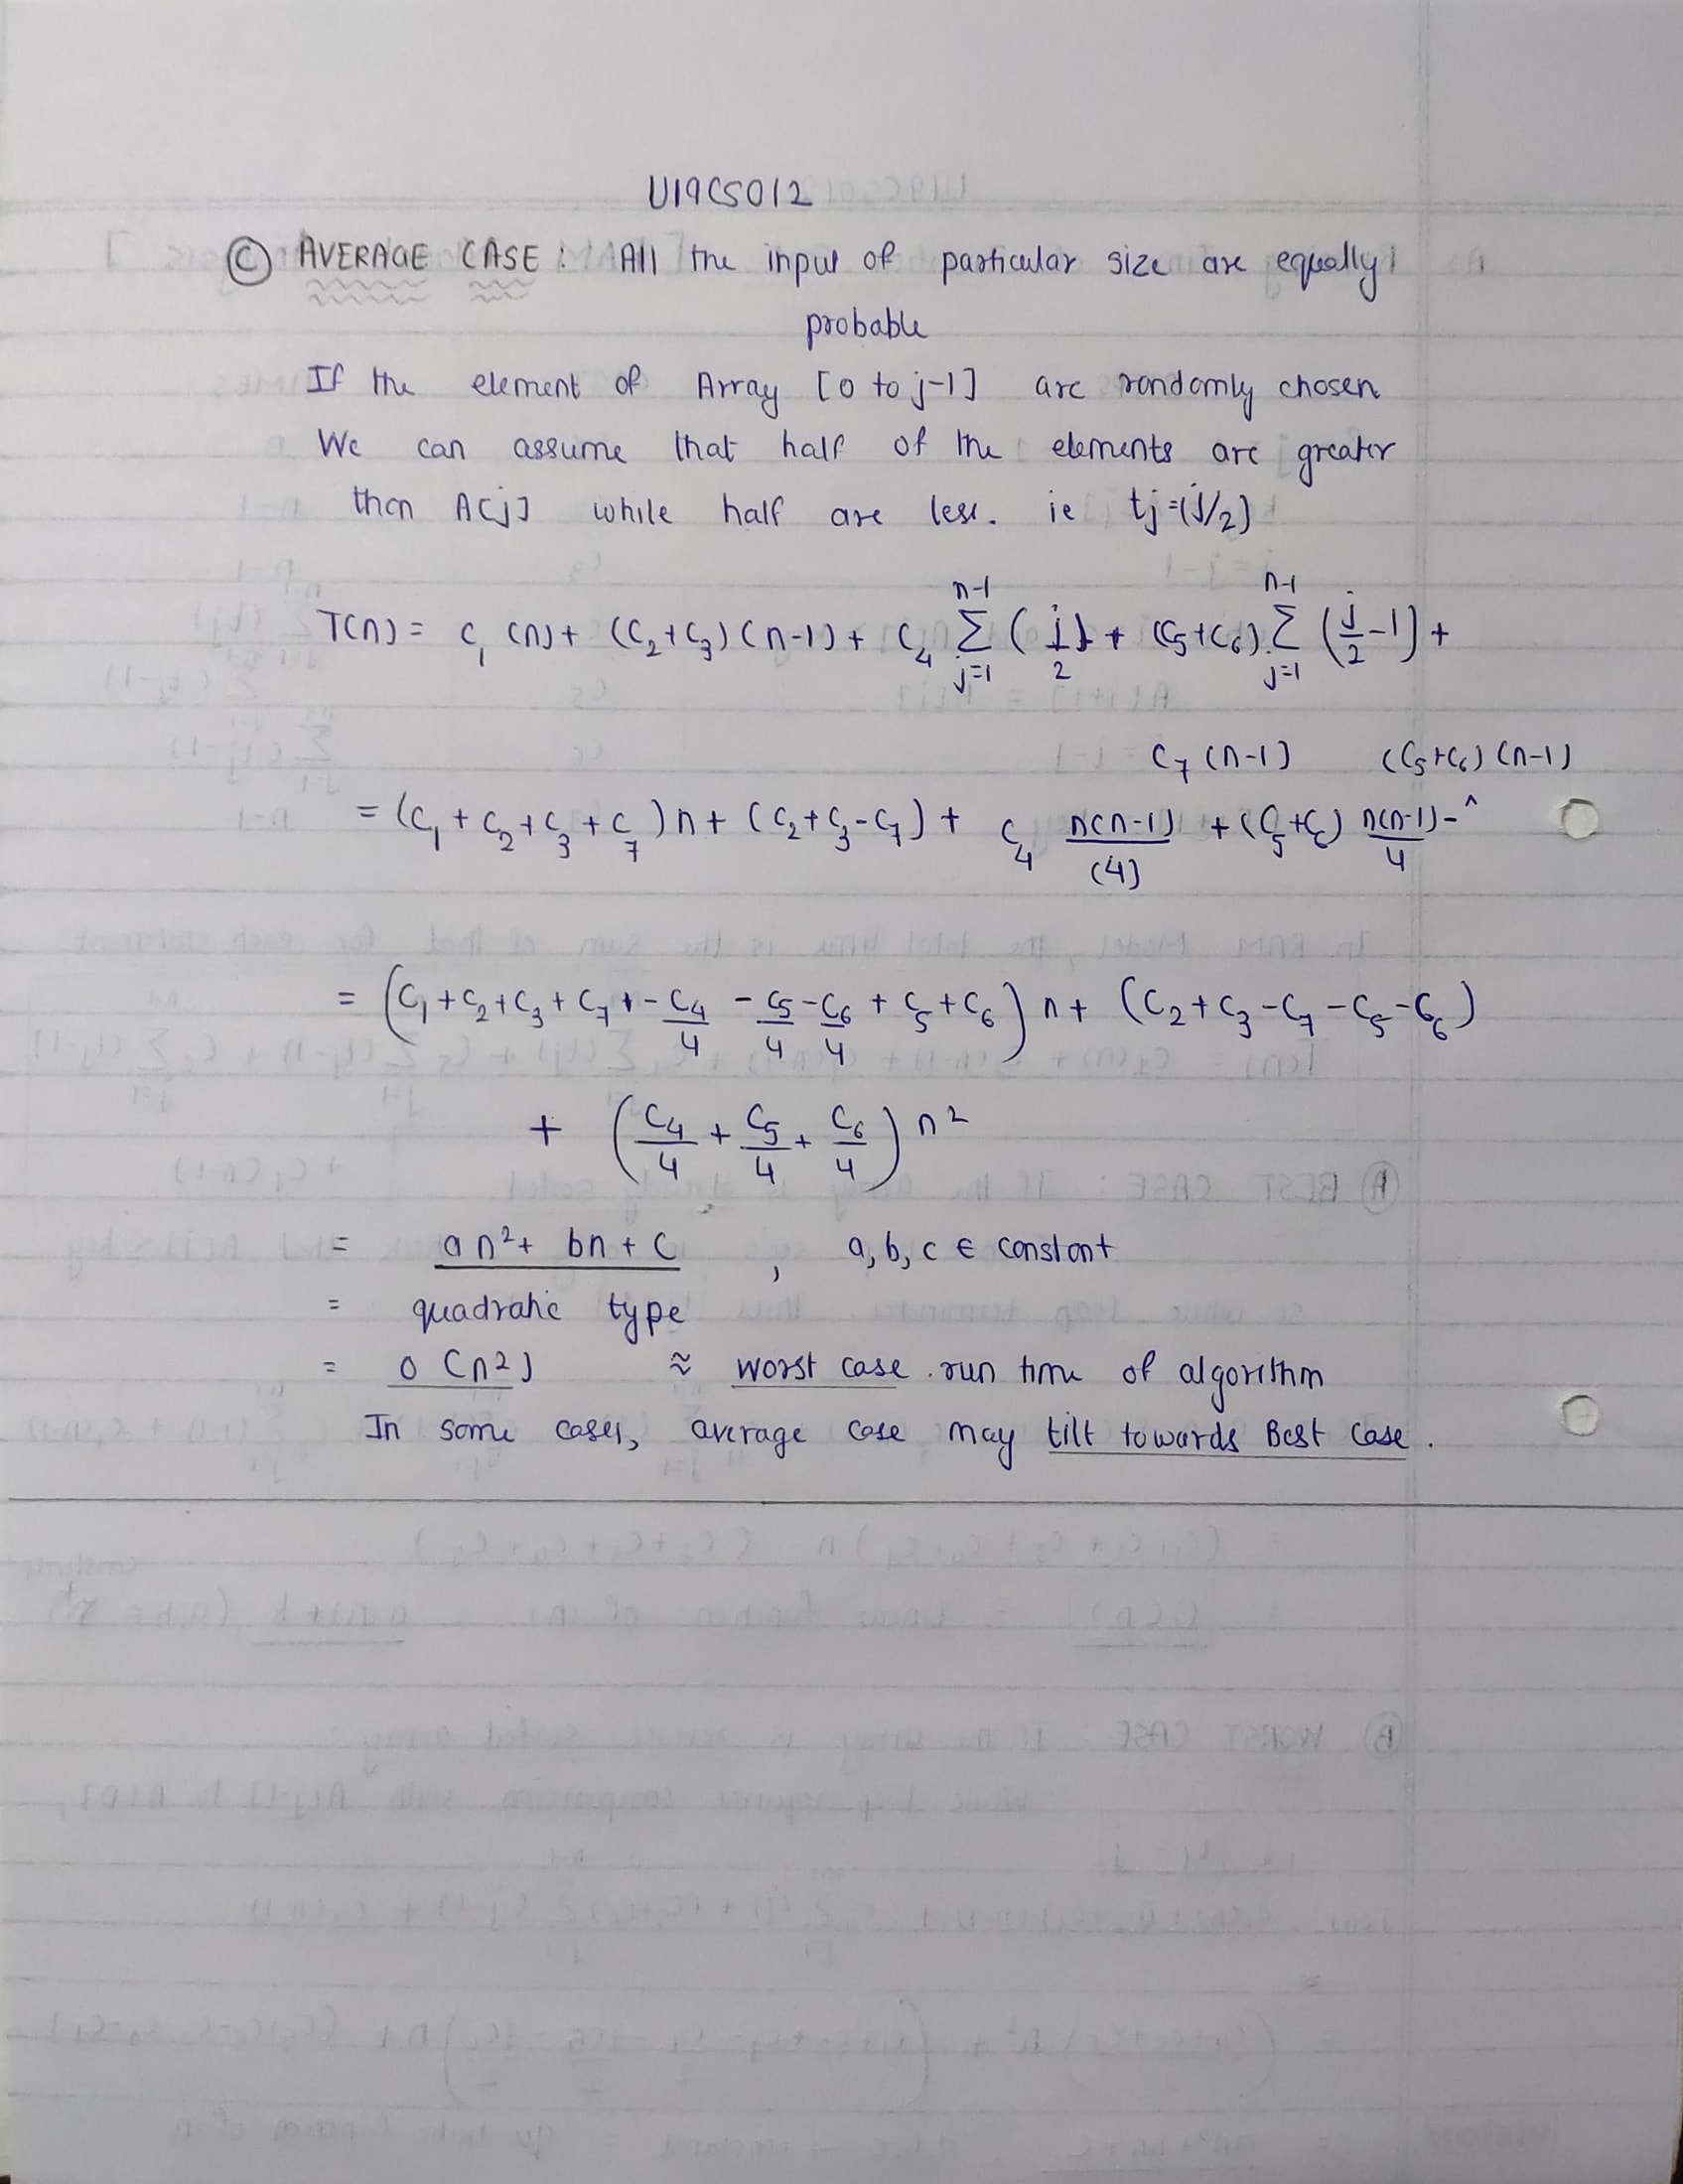 U19CS012
Ⓒ AVERAGE CASE : All the input of particular size are equally
probable
If the element of Array [0 to j-1] are randomly chosen
We can assume that half of the elements are greater
than A[j] while half are less. ie tj=(j/2)
T(n) = C₁(n) + (C₂+C₃)(n-1) + C₄ Σ_{j=1}^{n-1} (j/2) + (C₅+C₆) Σ_{j=1}^{n-1} (j/2 -1) +
C₇(n-1) (C₅+C₆)(n-1)
= (C₁+C₂+C₃+C₇)n + (C₂+C₃-C₇) + C₄ n(n-1)/(4) + (C₅+C₆) n(n-1)/4 - ^
= (C₁+C₂+C₃+C₇+-C₄/4 - C₅/4 - C₆/4 + C₅+C₆) n + (C₂+C₃-C₇-C₅-C₆)
+ (C₄/4 + C₅/4 + C₆/4) n²
= an²+ bn + C , a, b, c ∈ constant
= quadratic type
= O(n²) ≈ worst case run time of algorithm
In some cases, average case may tilt towards Best Case.